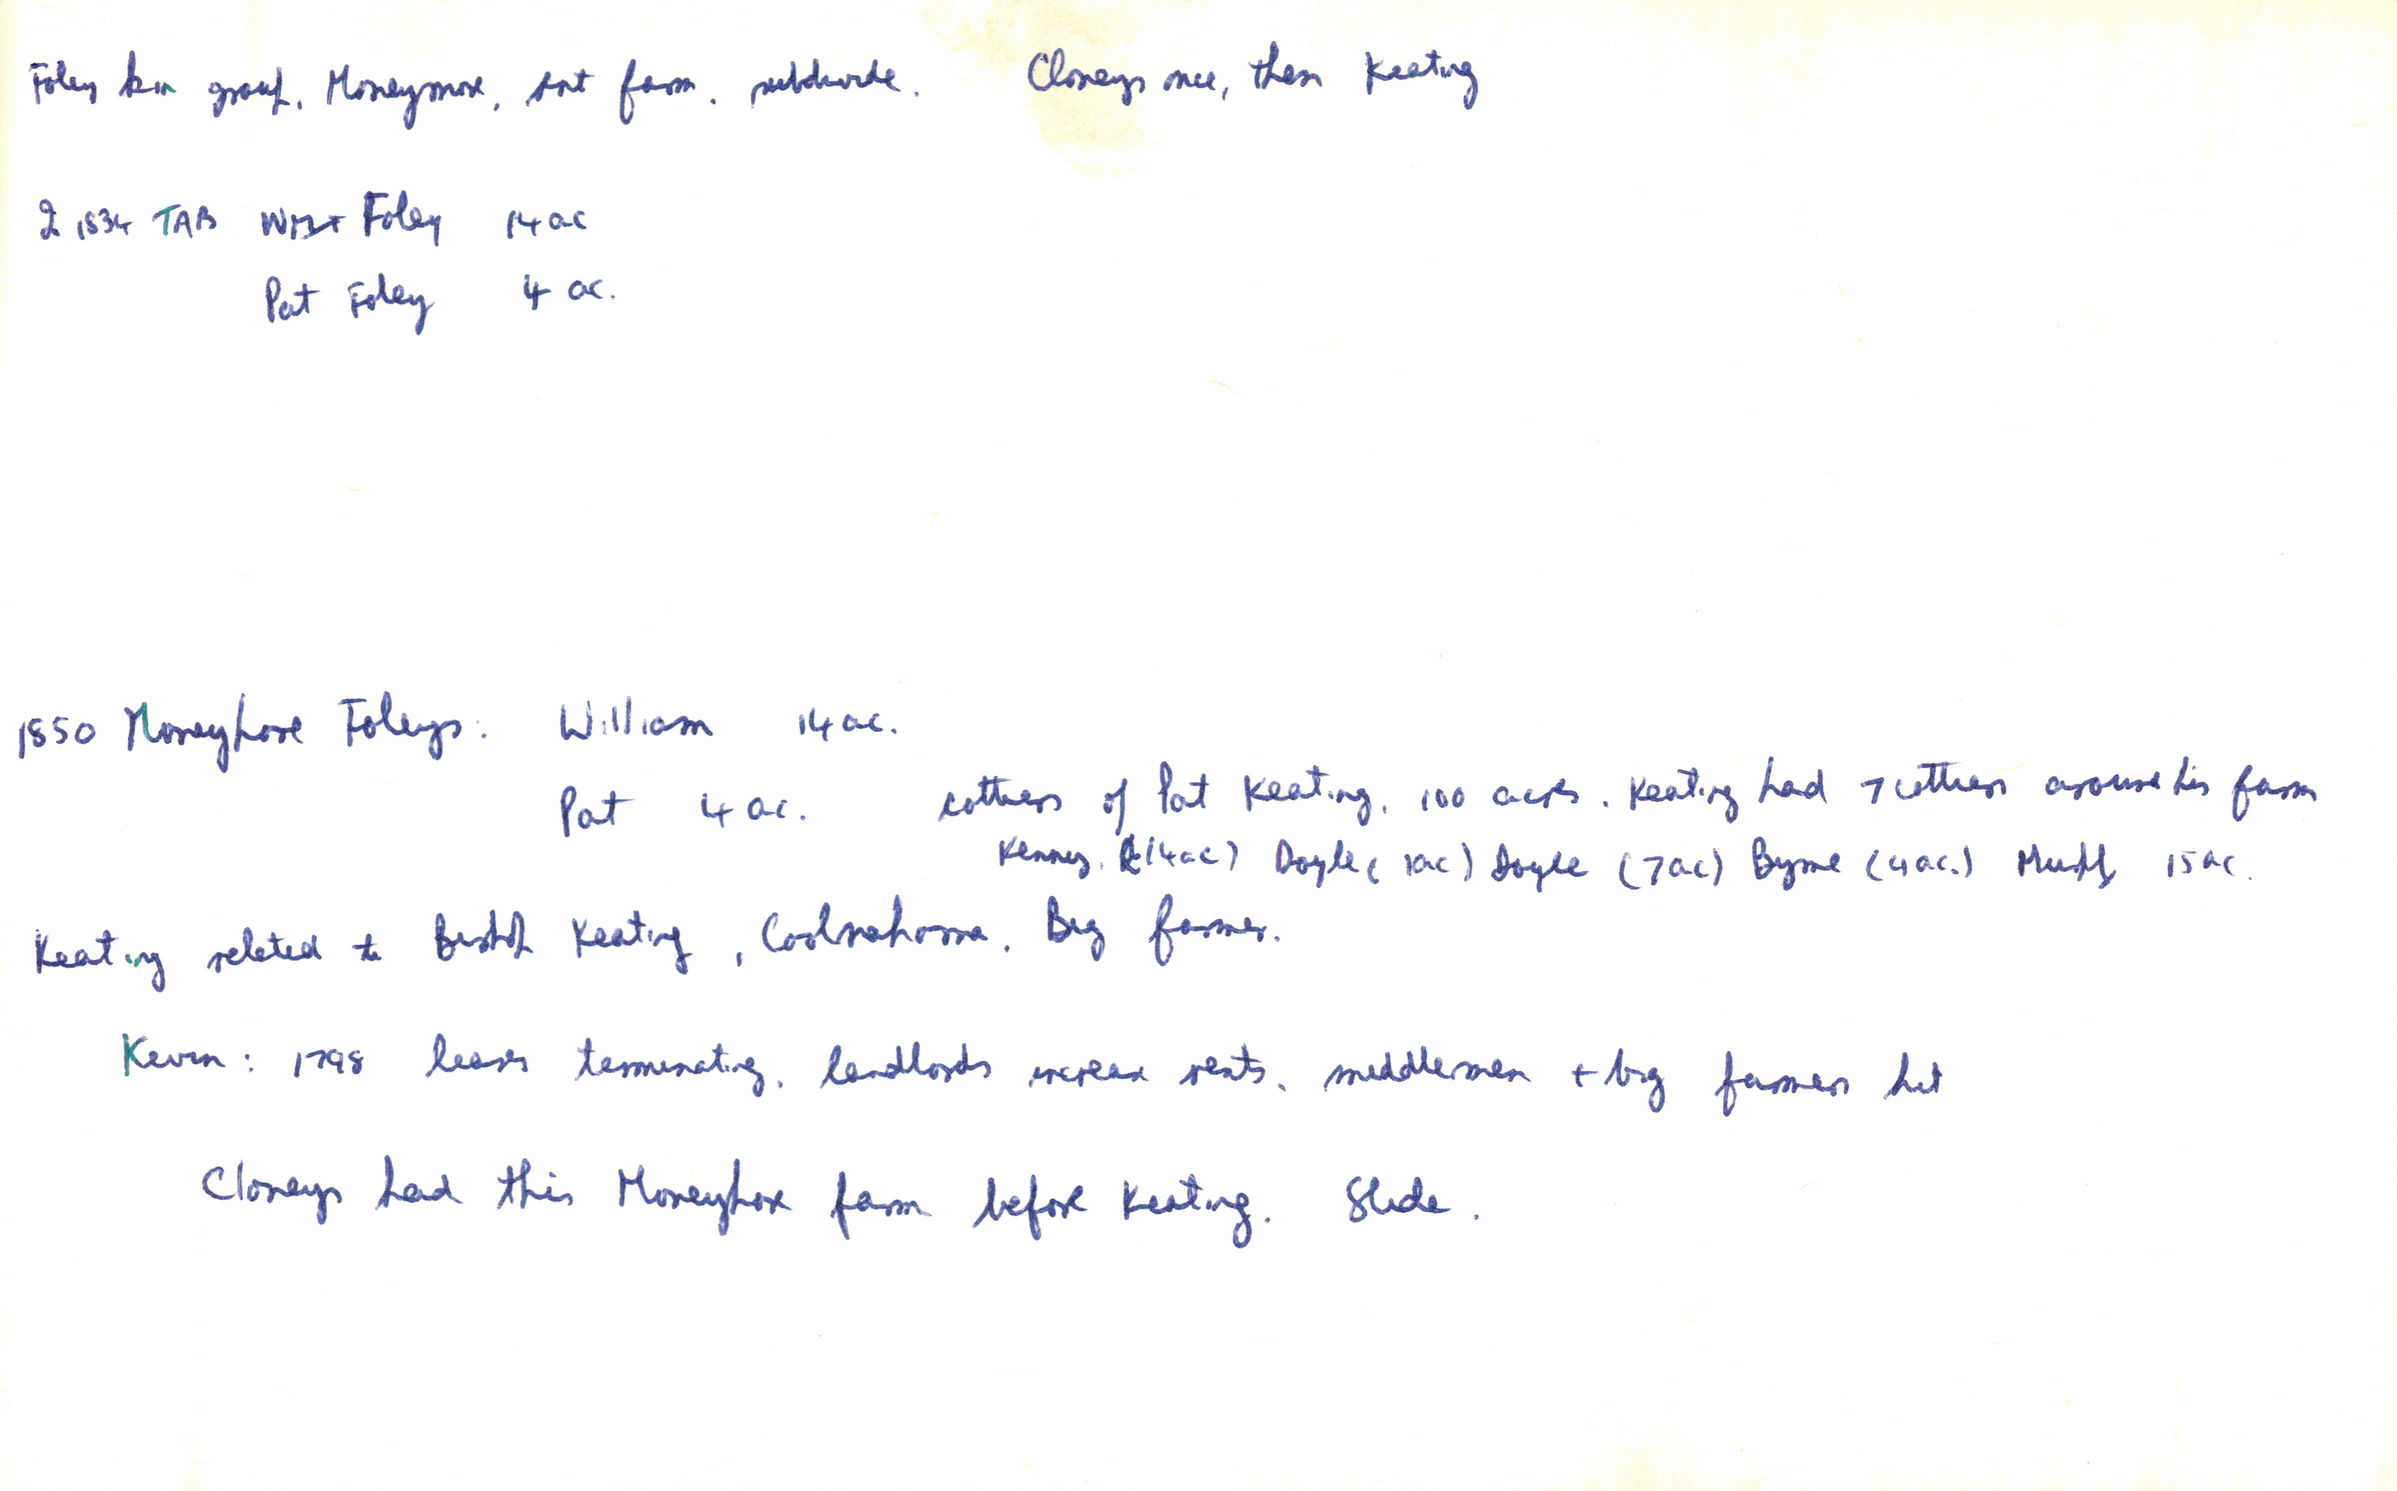 Foley kin group, Moneymore, farm. subdivide. Cloneys once, then Keating
1834 TAB Foley 14 ac
Pat Foley 4 ac.
1850 Moneyhore Foleys: William 14 ac.
Pat 4 ac. cottiers of Pat Keating, 100 acres. Keating had 7 cottiers around his farm
Kenney. (14ac) Doyle ( 1ac) Doyle (7ac) Byrne (4ac.) 15 ac.
Keating related to Bishop Keating, Coolnahorna. Big farmer.
Kevin: 1798 leases terminating. landlords increase rents. middlemen + big farmers hit
Cloneys had this Moneyhore farm before Keating. Slide.